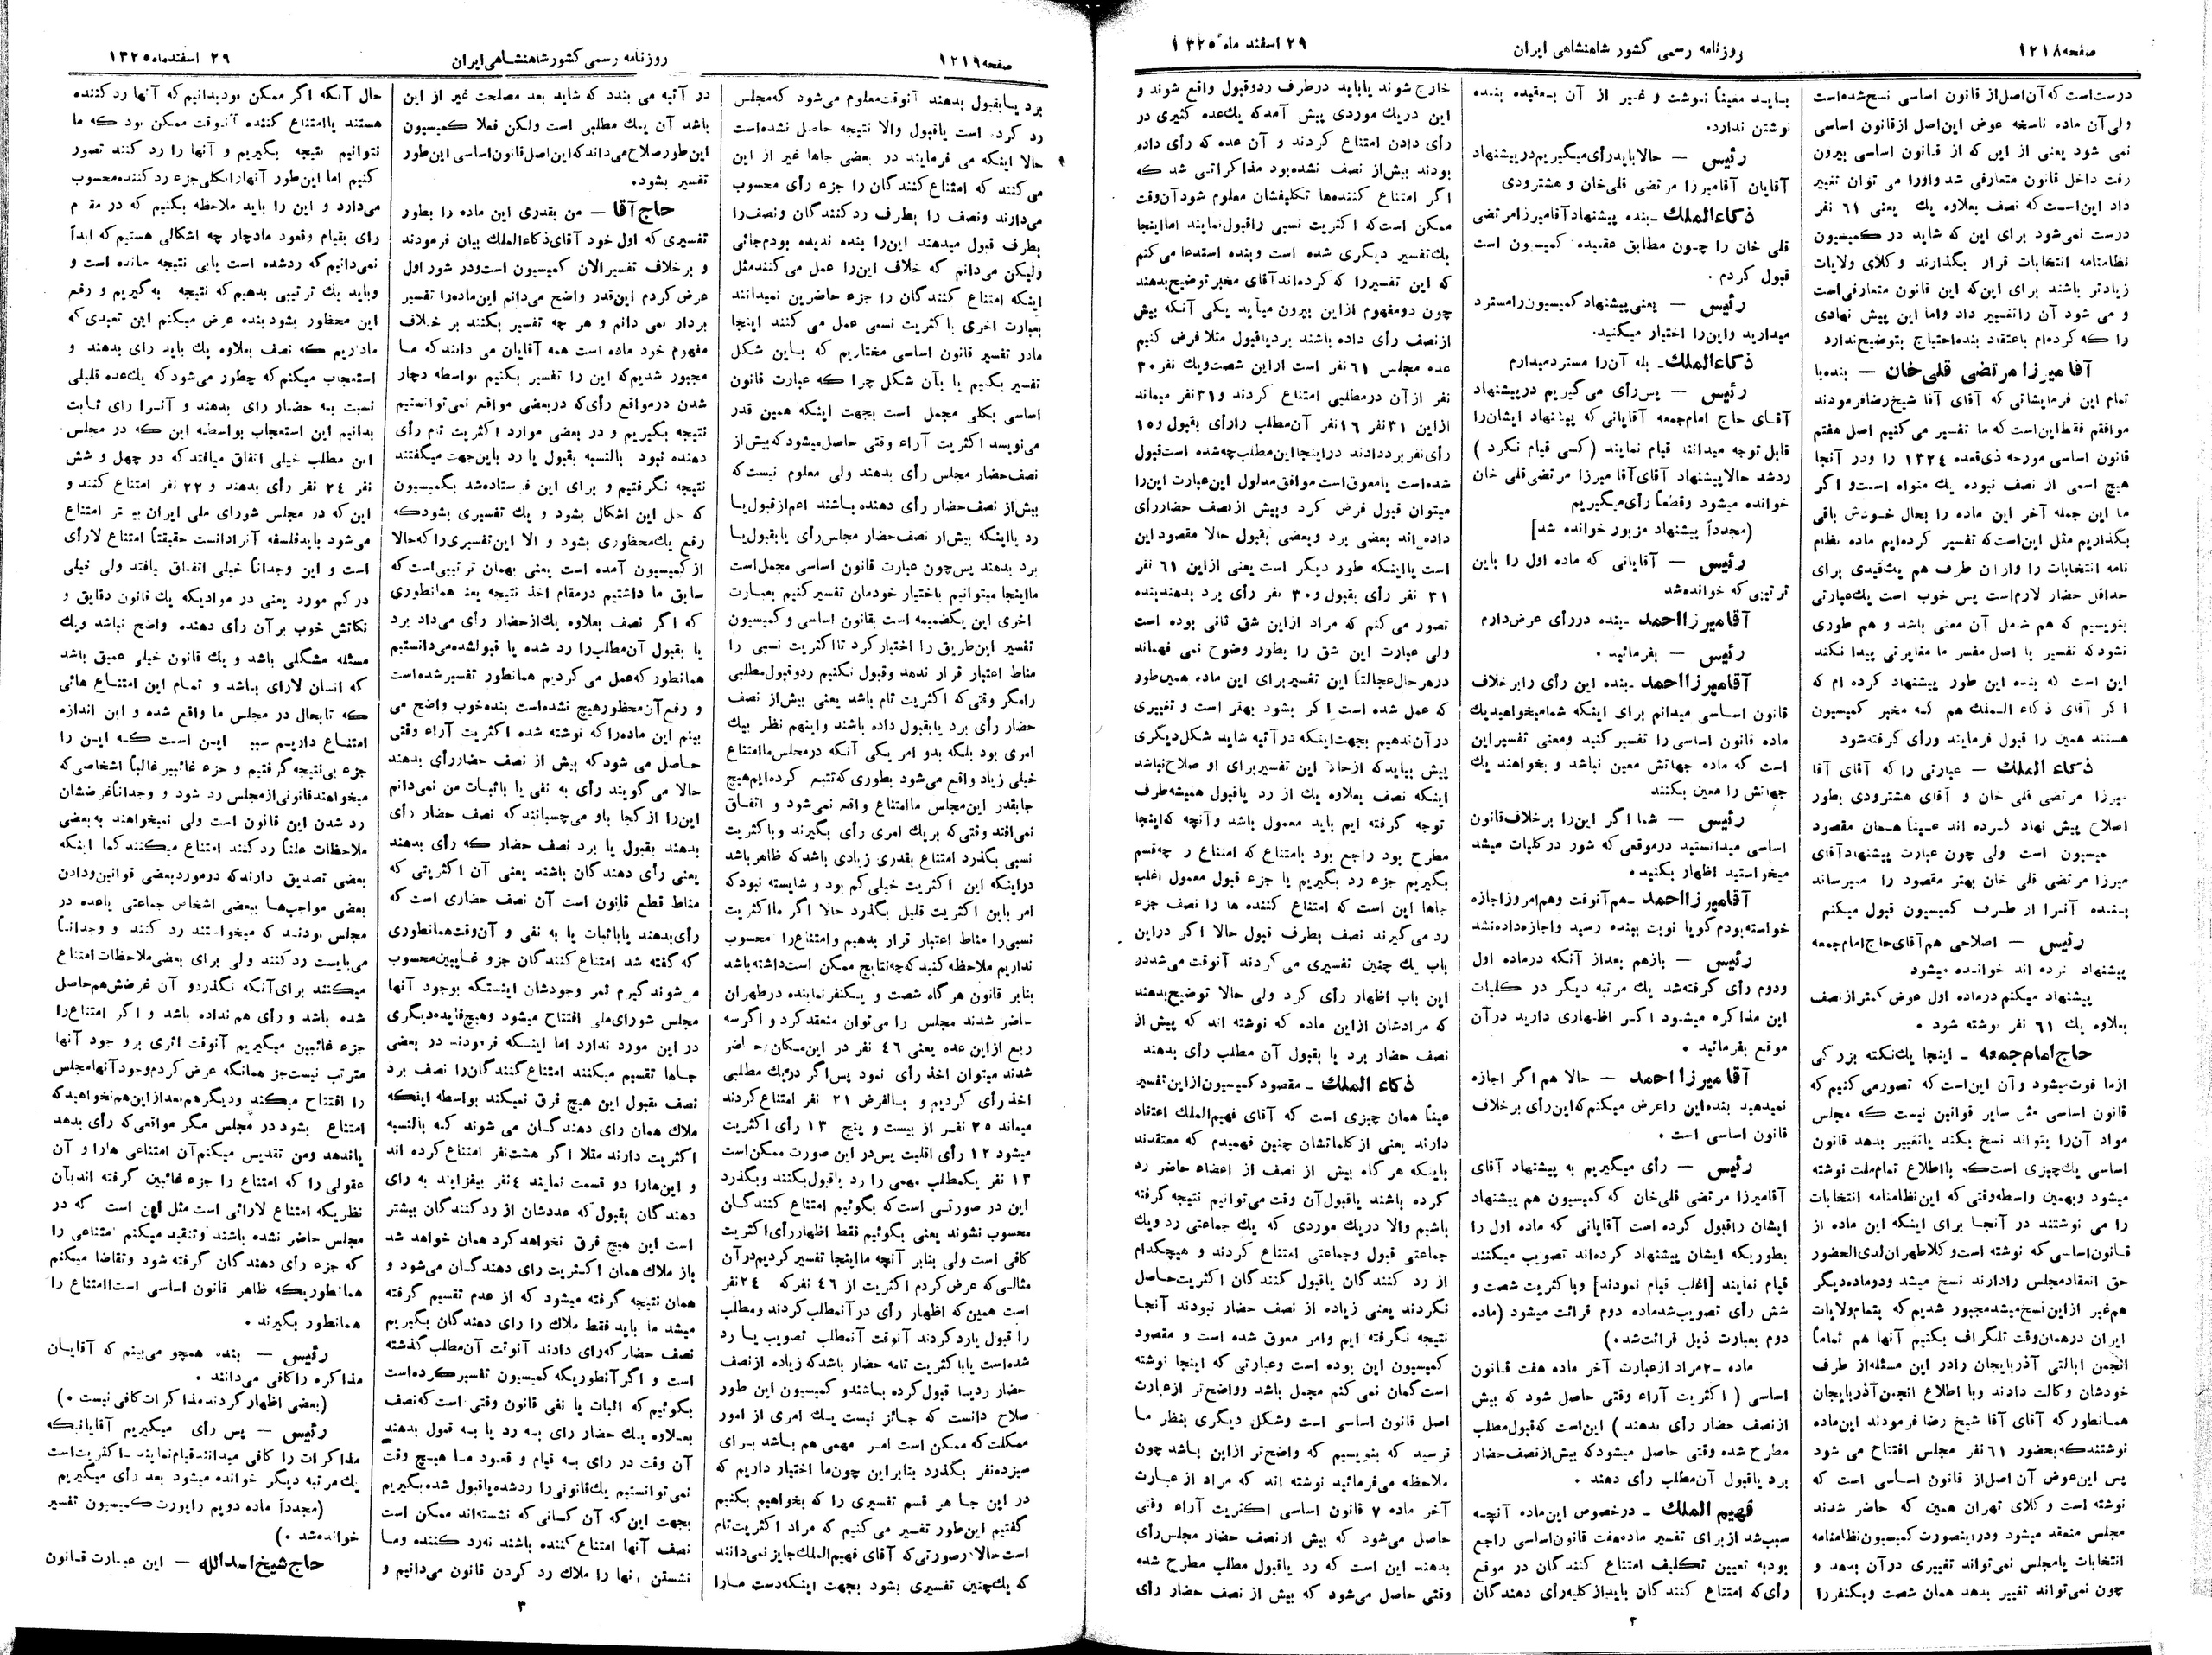 صفحه ۱۲۱۸
روزنامه رسمی کشور شاهنشاهی ایران
۲۹ اسفند ماه ۱۳۲۵
درست است که آن اصل از قانون اساسی نسخ شده است
ولی آن ماده ناسخه عوض این اصل از قانون اساسی
نمی شود یعنی از این که از قانون اساسی بیرون
رفت داخل قانون متعارفی شد و او را می توان تغییر
داد این است که نصف بعلاوه یك یعنی ٦١ نفر
درست نمی شود برای این که شاید در کمیسیون
نظامنامه انتخابات قرار بگذارند وکلای ولایات
زیادتر باشند برای این که این قانون متعارفی است
و می شود آن را تغییر داد واما این پیش نهادی
را که کرده ام باعتقاد بنده احتیاج بتوضیح ندارد
آقا میرزا مرتضی قلی خان — بنده با
تمام این فرمایشاتی که آقای آقا شیخ رضا فرمودند
موافقم فقط این است که ما تفسیر می کنیم اصل هفتم
قانون اساسی مورخه ذی قعده ١٣٢٤ را ودر آنجا
هیچ اسمی از نصف نبوده یك است و اگر
ما این جمله آخر این ماده را بحال خودش باقی
بگذاریم مثل این است که تفسیر کرده ایم ماده نظام
نامه انتخابات را و از آن طرف هم یك قیدی برای
حداقل حضار لازم است پس خوب است یك عبارتی
بنویسیم که هم شامل آن معنی باشد و هم طوری
نشود که تفسیر با اصل مفسر ما مغایرتی پیدا نکند
این است که بنده این طور پیشنهاد کرده ام که
اگر آقای ذکاء الملك هم که مخبر کمیسیون
هستند همین را قبول فرمایند ورأی گرفته شود
ذکاء الملك — عبارتی را که آقای آقا
میرزا مرتضی قلی خان و آقای هشترودی بطور
اصلاح پیش نهاد کرده اند عیناً همان مقصود
میسیون است ولی چون عبارت پیشنهاد آقای
میرزا مرتضی قلی خان بهتر مقصود را میرساند
بنده آنرا از طرف کمیسیون قبول میکنم
رئیس — اصلاحی هم آقای حاج امام جمعه
پیشنهاد کرده اند خوانده میشود
پیشنهاد میکنم در ماده اول عوض کمتر از نصف
بعلاوه یك ٦١ نفر نوشته شود .
حاج امام جمعه - اینجا یك نکته بزرگی
از ما فوت میشود و آن این است که تصور می کنیم که
قانون اساسی مثل سایر قوانین نیست که مجلس
مواد آن را بتواند نسخ بکند یا تغییر بدهد قانون
اساسی یك چیزی است که با اطلاع تمام ملت نوشته
میشود وبهمین واسطه وقتی که این نظامنامه انتخابات
را می نوشتند در آنجا برای اینکه این ماده از
قانون اساسی که نوشته است وکلا طهران لدی الحضور
حق انعقاد مجلس را دارند نسخ میشد ودو ماده دیگر
هم غیر از این نسخ میشد مجبور شدیم که بتمام ولایات
ایران در همان وقت تلگراف بکنیم آنها هم تماماً
انجمن ایالتی آذربایجان را در این مسئله از طرف
خودشان وکالت دادند وبا اطلاع انجمن آذربایجان
همانطور که آقای آقا شیخ رضا فرمودند این ماده
نوشتند که بحضور ٦١ نفر مجلس افتتاح می شود
پس این عوض آن اصل از قانون اساسی است که
نوشته است وکلای تهران همین که حاضر شدند
مجلس منعقد میشود ودر اینصورت کمیسیون نظامنامه
انتخابات یا مجلس نمی تواند تغییری در آن بدهد و
چون نمی تواند تغییر بدهد همان شصت ویکنفر را
باید معیناً نوشت و غیر از آن بعقیده بنده
نوشتن ندارد.
رئیس — حالا باید رأی میگیریم در پیشنهاد
آقایان آقا میرزا مرتضی قلی خان و هشترودی
ذکاء الملك - بنده پیشنهاد آقا میرزا مرتضی
قلی خان را چون مطابق عقیده کمیسیون است
قبول کردم .
رئیس — یعنی پیشنهاد کمیسیون را مسترد
میدارید و این را اختیار میکنید.
ذکاء الملك - بله آن را مسترد میدارم
رئیس — پس رأی می گیریم در پیشنهاد
آقای حاج امام جمعه آقایانی که پیشنهاد ایشان را
قابل توجه میدانند قیام نمایند (کسی قیام نکرد)
رد شد حالا پیشنهاد آقای آقا میرزا مرتضی قلی خان
خوانده میشود وقطعاً رأی میگیریم
(مجدداً پیشنهاد مزبور خوانده شد]
رئیس — آقایانی که ماده اول را باین
ترتیبی که خوانده شد
آقا میرزا احمد - بنده در رأی عرض دارم
رئیس — بفرمائید .
آقا میرزا احمد - بنده این رأی را برخلاف
قانون اساسی میدانم برای اینکه شما میخواهید یك
ماده قانون اساسی را تفسیر کنید ومعنی تفسیر این
است که ماده جهاتش معین نباشد و بخواهند یك
جهاتش را معین بکنند
رئیس — شما اگر این را برخلاف قانون
اساسی میدانستید در موقعی که شور در کلیات میشد
میخواستید اظهار بکنید.
آقا میرزا احمد - هم آنوقت وهم امروز اجازه
خواسته بودم گویا نوبت ببنده رسید واجازه داده نشد
رئیس — باز هم بعد از آنکه در ماده اول
ودوم رأی گرفته شد یك مرتبه دیگر در کلیات
این مذاکره میشود اگر اظهاری دارید در آن
موقع بفرمائید .
آقا میرزا احمد — حالا هم اگر اجازه
نمیدهید بنده این را عرض میکنم که این رأی برخلاف
قانون اساسی است .
رئیس — رأی میگیریم به پیشنهاد آقای
آقا میرزا مرتضی قلی خان که کمیسیون هم پیشنهاد
ایشان را قبول کرده است آقایانی که ماده اول را
بطوریکه ایشان پیشنهاد کرده اند تصویب میکنند
قیام نمایند [اغلب قیام نمودند] وبا کثریت شصت و
شش رأی تصویب شد ماده دوم قرائت میشود (ماده
دوم بعبارت ذیل قرائت شد .)
ماده -٢ مراد از عبارت آخر ماده هفت قانون
اساسی (اکثریت آراء وقتی حاصل شود که بیش
از نصف حضار رأی بدهند) این است که قبول مطلب
مطرح شده وقتی حاصل میشود که بیش از نصف حضار
برد یا قبول آن مطلب رأی دهند .
فهیم الملك - در خصوص این ماده آنچه
سبب شد از برای تفسیر ماده هفت قانون اساسی راجع
بود به تعیین تکلیف امتناع کنندگان در موقع
رأی که امتناع کنندگان باید از کلیه رأی دهندگان
خارج شوند یا باید در طرف رد و قبول واقع شوند و
این در یك موردی پیش آمد که یك عده کثیری در
رأی دادن امتناع کردند و آن عده که رأی داده
بودند بیش از نصف نشده بود مذاکراتی شد که
اگر امتناع کننده ها تکلیفشان معلوم شود آن وقت
ممکن است که اکثریت نسبی را قبول نمایند اما اینجا
یك تفسیر دیگری شده است وبنده استدعا می کنم
که این تفسیر را که کرده اند آقای مخبر توضیح بدهند
چون دو مفهوم از این بیرون میآید یکی آنکه بیش
از نصف رأی داده باشند برد یا قبول مثلا فرض کنیم
عده مجلس ٦١ نفر است از این شصت ویك نفر ٣٠
نفر از آن در مطلبی امتناع کردند و ٣١ نفر میماند
از این ٣١ نفر ١٦ نفر آن مطلب را رأی بقبول و ١٥
رأی نفر برد دادند در اینجا این مطلب چه شده است قبول
شده است یا معوق است موافق مدلول این عبارت این را
میتوان قبول فرض کرد وبیش از نصف حضار رأی
داده اند بعضی برد وبعضی بقبول حالا مقصود این
است یا اینکه طور دیگر است یعنی از این ٦١ نفر
٣١ نفر رأی بقبول و ٣٠ نفر رأی برد بدهند بنده
تصور می کنم که مراد از این شق ثانی بوده است
ولی عبارت این شق را بطور وضوح نمی فهماند
در هر حال عجالتاً این تفسیر برای این ماده همین طور
که عمل شده است اگر بشود بهتر است و تغییری
در آن ندهیم بجهت اینکه در آتیه شاید شکل دیگری
پیش بیاید که از حالا این تفسیر برای او صلاح نباشد
اینکه نصف بعلاوه یك از رد یا قبول همیشه طرف
توجه گرفته ایم باید معمول باشد و آنچه که اینجا
مطرح بود راجع بود بامتناع که امتناع را چه قسم
بگیریم جزء رد بگیریم یا جزء قبول معمول اغلب
جاها این است که امتناع کننده ها را نصف جزء
رد می گیرند نصف بطرف قبول حالا اگر در این
باب یك چنین تفسیری می کردند آنوقت می شد در
این باب اظهار رأی کرد ولی حالا توضیح بدهند
که مرادشان از این ماده که نوشته اند که بیش از
نصف حضار برد یا بقبول آن مطلب رأی بدهند
ذکاء الملك - مقصود کمیسیون از این تفسیر
عیناً همان چیزی است که آقای فهیم الملك اعتقاد
دارند یعنی از کلماتشان چنین فهمیدم که معتقدند
باینکه هر گاه بیش از نصف از اعضاء حاضر رد
کرده باشند یا قبول آن وقت می توانیم نتیجه گرفته
باشیم والا در یك موردی که یك جماعتی رد ویك
جماعتی قبول وجماعتی امتناع کردند و هیچکدام
از رد کنندگان یا قبول کنندگان اکثریت حاصل
نکردند یعنی زیاده از نصف حضار نبودند آنجا
نتیجه نگرفته ایم وامر معوق شده است و مقصود
کمیسیون این بوده است وعبارتی که اینجا نوشته
است گمان نمی کنم مجمل باشد وواضح تر از عبارت
اصل قانون اساسی است وشکل دیگری بنظر ما
نرسید که بنویسیم که واضح تر از این باشد چون
ملاحظه می فرمائید نوشته اند که مراد از عبارت
آخر ماده ٧ قانون اساسی اکثریت آراء وقتی
حاصل می شود که بیش از نصف حضار مجلس رأی
بدهند این است که رد یا قبول مطلب مطرح شده
وقتی حاصل می شود که بیش از نصف حضار رأی
۲
صفحه ۱۲۱۹
روزنامه رسمی کشور شاهنشاهی ایران
۲۹ اسفند ماه ۱۳۲۵
برد یا بقبول بدهند آنوقت معلوم می شود که مجلس
رد کرده است یا قبول والا نتیجه حاصل نشده است
حالا اینکه می فرمایند در بعضی جاها غیر از این
می کنند که امتناع کنندگان را جزء رأی محسوب
می دارند ونصف را بطرف رد کنندگان ونصف را
بطرف قبول میدهند این را بنده ندیده بودم جائی
ولیکن می دانم که خلاف این را عمل می کنند مثل
اینکه امتناع کنندگان را جزء حاضرین نمیدانند
بعبارت اخری با کثریت نسبی عمل می کنند اینجا
ما در تفسیر قانون اساسی مختاریم که باین شکل
تفسیر بکنیم یا بآن شکل چرا که عبارت قانون
اساسی بکلی مجمل است بجهت اینکه همین قدر
می نویسد اکثریت آراء وقتی حاصل میشود که بیش از
نصف حضار مجلس رأی بدهند ولی معلوم نیست که
بیش از نصف حضار رأی دهنده باشند اعم از قبول یا
رد یا اینکه بیش از نصف حضار مجلس رأی یا بقبول یا
برد بدهند پس چون عبارت قانون اساسی مجمل است
ما اینجا میتوانیم باختیار خودمان تفسیر کنیم بعبارت
اخری این یك ضمیمه است بقانون اساسی و کمیسیون
تفسیر این طریق را اختیار کرد تا اکثریت نسبی را
مناط اعتبار قرار ندهد وقبول نکنیم رد و قبول مطلبی
را مگر وقتی که اکثریت تام باشد یعنی بیش از نصف
حضار رأی برد یا بقبول داده باشند واینهم نظر بیك
امری بود بلکه بدو امر یکی آنکه در مجلس ما امتناع
خیلی زیاد واقع می شود بطوری که تتبع کرده ایم هیچ
جا بقدر این مجلس ما امتناع واقع نمی شود و اتفاق
نمی افتد وقتی که بر یك امری رأی بگیرند وبا کثریت
نسبی بگذرد امتناع بقدری زیادی باشد که ظاهر باشد
در اینکه این اکثریت خیلی کم بود و شایسته نبود که
امر باین اکثریت قلیل بگذرد حالا اگر ما اکثریت
نسبی را مناط اعتبار قرار بدهیم وامتناع را محسوب
نداریم ملاحظه کنید که چه نتایج ممکن است داشته باشد
بنابر قانون هرگاه شصت و یکنفر نماینده در طهران
حاضر شدند مجلس را می توان منعقد کرد و اگر سه
ربع از این عده یعنی ٤٦ نفر در این مکان حاضر
شدند میتوان اخذ رأی نمود پس اگر در یك مطلبی
اخذ رأی کردیم و بالفرض ٢١ نفر امتناع کردند
میماند ٢٥ نفر از بیست و پنج ١٣ رأی اکثریت
میشود ١٢ رأی اقلیت پس در این صورت ممکن است
١٣ نفر یك مطلب مهمی را رد یا قبول بکنند وبگذرد
این در صورتی است که بگوئیم امتناع کنندگان
محسوب نشوند یعنی بگوئیم فقط اظهار رأی اکثریت
کافی است ولی بنابر آنچه ما اینجا تفسیر کردیم در آن
مثالی که عرض کردم اکثریت از ٤٦ نفر که ٢٤ نفر
است همین که اظهار رأی در آنمطلب کردند ومطلب
را قبول یا رد کردند آنوقت آنمطلب تصویب یا رد
شده است یا با کثریت تامه حضار باشد که زیاده از نصف
حضار رد یا قبول کرده باشند و کمیسیون این طور
صلاح دانست که جائز نیست یك امری از امور
مملکت که ممکن است امر مهمی هم باشد برای
سیزده نفر بگذرد بنابر این چون ما اختیار داریم که
در این جا هر قسم تفسیری را که بخواهیم بکنیم
گفتیم این طور تفسیر می کنیم که مراد اکثریت تام
است حالا در صورتی که آقای فهیم الملك جایز نمی دانند
که یك چنین تفسیری بشود بجهت اینکه دست ما را
در آتیه می بندد که شاید بعد مصلحت غیر از این
باشد آن یك مطلبی است ولکن فعلا کمیسیون
این طور صلاح می داند که این اصل قانون اساسی این طور
تفسیر بشود.
حاج آقا — من بقدری این ماده را بطور
تفسیری که اول خود آقای ذکاء الملك بیان فرمودند
و بر خلاف تفسیر الان کمیسیون است ودر شور اول
عرض کردم این قدر واضح می دانم این ماده را تفسیر
بردار نمی دانم و هر چه تفسیر بکنند بر خلاف
مفهوم خود ماده است همه آقایان می دانند که ما
مجبور شدیم که این را تفسیر بکنیم بواسطه دچار
شدن در مواقع رأی که در بعضی مواقع نمی توانستیم
نتیجه بگیریم و در بعضی موارد اکثریت تام رأی
دهنده نبود بالنسبه بقبول یا رد باین جهت میگفتند
نتیجه نگرفتیم و برای این فرستاده شد بکمیسیون
که حل این اشکال بشود و یك تفسیری بشود که
رفع یك محظوری بشود و الا این تفسیری را که حالا
از کمیسیون آمده است یعنی بهمان ترتیبی است که
سابق ما داشتیم در مقام اخذ نتیجه یعنی همانطوری
که اگر نصف بعلاوه یك از حضار رأی می داد برد
یا بقبول آن مطلب را رد شده یا قبول شده می دانستیم
همانطور که عمل می کردیم همانطور تفسیر شده است
و رفع آن محظور هیچ نشده است بنده خوب واضح می
بینم این ماده را که نوشته شده اکثریت آراء وقتی
حاصل می شود که بیش از نصف حضار رأی بدهند
حالا می گویند رأی به نفی یا باثبات من نمی دانم
این را از کجا باو می چسبانند که نصف حضار رأی
بدهند بقبول یا برد نصف حضار که رأی بدهند
یعنی رأی دهندگان باشند یعنی آن اکثریتی که
مناط قطع قانون است آن نصف حضاری است که
رأی بدهند یا باثبات یا به نفی و آن وقت همانطوری
که گفته شد امتناع کنندگان جزو غایبین محسوب
می شوند گیرم ثمر وجودشان اینستکه بوجود آنها
مجلس شورای ملی افتتاح میشود وهیچ فایده دیگری
در این مورد ندارد اما اینکه فرمودند در بعضی
جاها تقسیم میکنند امتناع کنندگان را نصف برد
نصف بقبول این هیچ فرق نمیکند بواسطه اینکه
ملاك همان رای دهندگان می شوند که بالنسبه
اکثریت دارند مثلا اگر هشت نفر امتناع کرده اند
و این ها را دو قسمت نمایند ٤ نفر بیفزایند به رای
دهندگان بقبول که عددشان از رد کنندگان بیشتر
است این هیچ فرق نخواهد کرد همان خواهد شد
باز ملاك همان اکثریت رای دهندگان می شود و
همان نتیجه گرفته میشود که از عدم تقسیم گرفته
میشد ما باید فقط ملاك را رای دهندگان بگیریم
نصف حضار که رای دادند آنوقت آن مطلب گذشته
است و اگر آنطوریکه کمیسیون تفسیر کرده است
بگوئیم که اثبات یا نفی قانون وقتی است که نصف
بعلاوه یك حضار رای به رد یا به قبول بدهند
آن وقت در رای به قیام و قعود ما هیچ وقت
نمی توانستیم یك قانونی را رد شده یا قبول شده بگیریم
بجهت این که آن کسانی که نشسته اند ممکن است
نصف آنها امتناع کننده باشند نه رد کننده وما
نشستن آنها را ملاك رد کردن قانون می دانیم و
حال آنکه اگر ممکن بود بدانیم که آنها رد کننده
هستند یا امتناع کننده آنوقت ممکن بود که ما
نتوانیم نتیجه بگیریم و آنها را رد کنند تصور
کنیم اما این طور آنها را بکلی جزء رد کننده محسوب
می دارد و این را باید ملاحظه بکنیم که در مقام
رای بقیام وقعود ما دچار چه اشکالی هستیم که ابداً
نمی دانیم که رد شده است یا بی نتیجه مانده است و
وباید یك ترتیبی بدهیم که نتیجه بگیریم و رفع
این محظور بشود بنده عرض میکنم این تعبدی که
ما داریم که نصف بعلاوه یك باید رای بدهند و
استعجاب میکنم که چطور می شود که یك عده قلیلی
نسبت به حضار رای بدهند و آنرا رای ثابت
بدانیم این استعجاب بواسطه این که در مجلس
این مطلب خیلی اتفاق میافتد که در چهل و شش
نفر ٢٤ نفر رأی بدهند و ٢٢ نفر امتناع کنند و
این که در مجلس شورای ملی ایران بیشتر امتناع
می شود باید فلسفه آنرا دانست حقیقتاً امتناع لا رأی
است و این وجداناً خیلی اتفاق یافتد ولی خیلی
در کم مورد یعنی در موادیکه یك قانون دقایق و
نکاتش خوب بر آن رأی دهنده واضح نباشد ویك
مسئله مشکلی باشد و یك قانون خیلی عمیق باشد
که انسان لارای باشد و تمام این امتناع هائی
که تابحال در مجلس ما واقع شده و این اندازه
امتناع داریم سبب این است که این را
جزء بی نتیجه گرفتیم و جزء غائبین غالباً اشخاصی که
میخواهند قانونی از مجلس رد شود و وجداناً غرضشان
رد شدن این قانون است ولی نمیخواهند به بعضی
ملاحظات علناً رد کنند امتناع میکنند کما اینکه
بعضی تصدیق دارند که در مورد بعضی قوانین ودادن
بعضی مواجب ها ببعضی اشخاص جماعتی یا عده در
مجلس بودند که میخواستند رد کنند و وجداناً
می بایست رد کنند ولی برای بعضی ملاحظات امتناع
میکنند برای آنکه نگذرد و آن غرضش هم حاصل
شده باشد و رأی هم نداده باشد و اگر امتناع را
جزء غائبین میگیریم آنوقت اثری بر وجود آنها
مترتب نیست جز همانکه عرض کردم وجود آنها مجلس
را افتتاح میکند ودیگر هم بعد از این هم نخواهید که
امتناع بشود در مجلس مگر مواقعی که رأی بدهد
یا ندهد ومن تقدیس میکنم آن امتناعی ها را و آن
عقولی را که امتناع را جزء غائبین گرفته اند بآن
نظریکه امتناع لارائی است مثل این است که در
مجلس حاضر نشده باشند وتنقید میکنم امتناعی را
که جزء رأی دهندگان گرفته شود وتقاضا میکنم
همانطوریکه ظاهر قانون اساسی است امتناع را
همانطور بگیرند .
رئیس — بنده همچو می بینم که آقایان
مذاکره را کافی می دانند .
(بعضی اظهار کردند مذاکرات کافی نیست .)
رئیس — پس رأی میگیریم آقایانیکه
مذاکرات را کافی میدانند قیام نمایند - اکثریت است
یك مرتبه دیگر خوانده میشود بعد رأی میگیریم
(مجدداً ماده دویم راپورت کمیسیون تفسیر
خوانده شد .)
حاج شیخ اسدالله — این عبارت قانون
۳